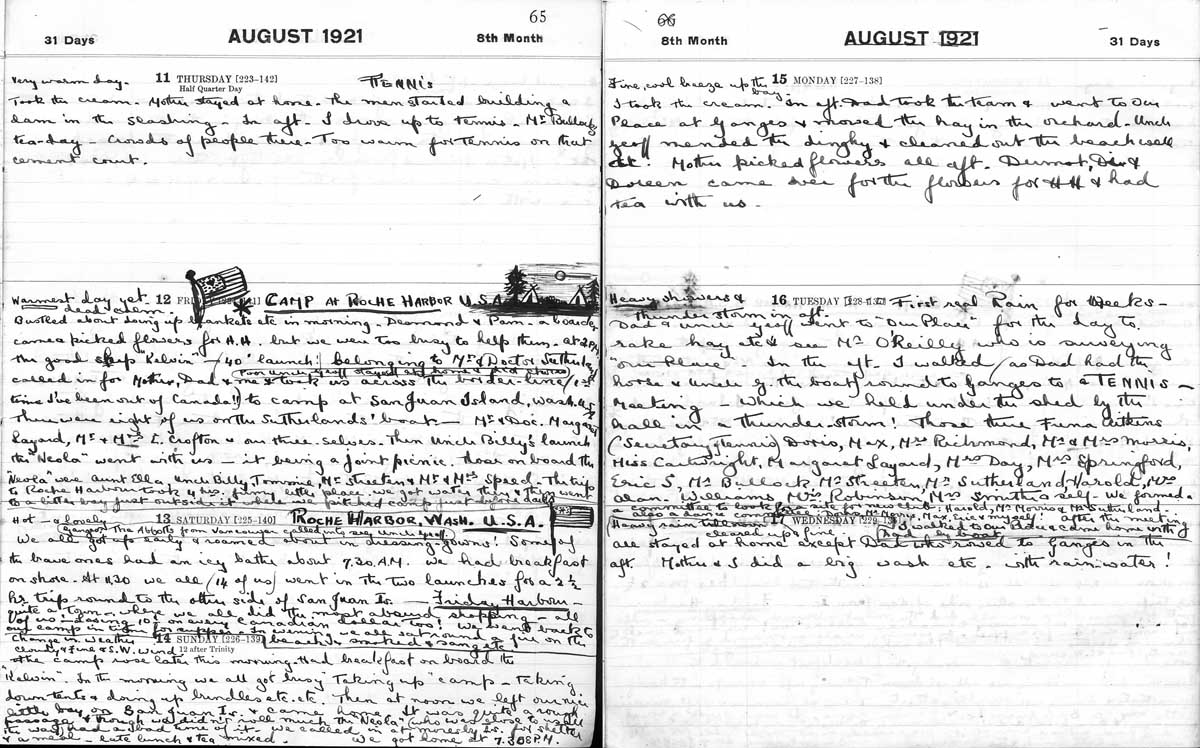 65
31 Days AUGUST 1921 8th Month
Very warm day. 11 THURSDAY [223-142] TENNIS
Half Quarter Day
Took the cream. Mother stayed at home. The men started building a
dam in the slashing. In aft. I drove up to tennis. Mr Bullock's
tea-day. Crowds of people there. Too warm for tennis on that
cement court.
Warmest day yet. 12 CAMP AT ROCHE HARBOR U.S.A.
dead calm.
Bustled about doing up blankets etc in morning. Desmond & Pam - a boarder
came & picked flowers for H.H. but we were too busy to help them. at 2 P.M.
the good ship "Kelvin" - (40' launch) belonging to Mr & Doctor Sutherland
(Poor Uncle Geoff stayed at home & did chores)
called in for Mother, Dad & me & took us across the border-line (1st
time I've been out of Canada!) to camp at San Juan Island, Wash.
There were eight of us on the Sutherlands' boat - Mr & Doc. Margaret
Layard, Mr & Mrs L. Crofton & our three selves. Then Uncle Billy's launch
the "Neola" went with us - it being a joint picnic. Those on board the
"Neola" were Aunt Ella, Uncle Billy, Tommie, Mr Streeten & Mr & Mrs Speed. The trip
to Roche Harbour took 4 hrs. place. we got water there & then went
to a little bay just outside it where we pitched camp just before dark.
Hot - a lovely 13 SATURDAY [225-140] ROCHE HARBOR, WASH. U.S.A.
The Abbotts from Vancouver called
We all got up early & roamed about in dressing gowns! Some of
the brave ones had an icy bathe about 7.30 A.M. We had breakfast
on shore. At 11.30 we all (14 of us) went in the two launches for a 2½
hr. trip round to the other side of San Juan Is. - Friday Harbour -
quite a town - where we all did the most absurd shopping - all
of us losing 10¢ on every Canadian dollar too! We went back to
our camp in time for supper. In evening we all sat round a fire on the
beach & smoked & sang etc
Change in weather 14 SUNDAY [226-139]
cloudy & fine & S.W. wind 12 after Trinity
The camp rose later this morning. Had breakfast on board the
"Kelvin". In the morning we all got busy "taking up" camp - taking
down tents & doing up bundles etc. etc. Then at noon we left our nice
little bay on San Juan Is. & came home. It was quite a rough
passage & though we didn't roll much the "Neola" (who was close to us all
the way) had a bad time of it. We called in at Moresby Is. for shelter
& a meal - late lunch & tea mixed. We got home at 7.30 P.M.
66
8th Month AUGUST 1921 31 Days
Fine, cool breeze up the bay. 15 MONDAY [227-138]
I took the cream. In aft. Dad took the team & went to Our
Place at Ganges & mowed the hay in the orchard. Uncle
Geoff mended the dinghy & cleaned out the beach well
etc. Mother picked flowers all aft. Dermot, Des &
Doreen came over for the flowers for H.H. & had
tea with us.
Heavy showers & 16 TUESDAY [228-137] First real Rain for Weeks -
thunder storm in aft.
Dad & Uncle Geoff went to "Our Place" for the day to
rake hay etc & see Mr O'Reilly who is surveying
"our Place". In the aft. I walked (as Dad had the
horse & Uncle G. the boat) round to Ganges to a TENNIS -
Meeting which we held under the shed by the
hall in a thunder-storm! Those there Fiena Aitkens
(Secretary of tennis) Doris, Max, Mrs Richmond, Mr & Mrs Morris,
Miss Cartwright, Margaret Layard, Mrs Day, Mrs Springford,
Eric S, Mr Bullock, Mr Streeten, Mr Sutherland, Harold, Mrs
Alan Williams, Mrs Robinson, Mrs Smith & self - We formed
a committee to look for a site for new club: Harold, Mr Morris & Mr Sutherland.
& myself! after the meeting
Heavy rain till noon 17 WEDNESDAY
cleared up & fine. Dad by boat
all stayed at home except Dad who rowed to Ganges in the
aft. Mother & I did a big wash etc. with rain-water!